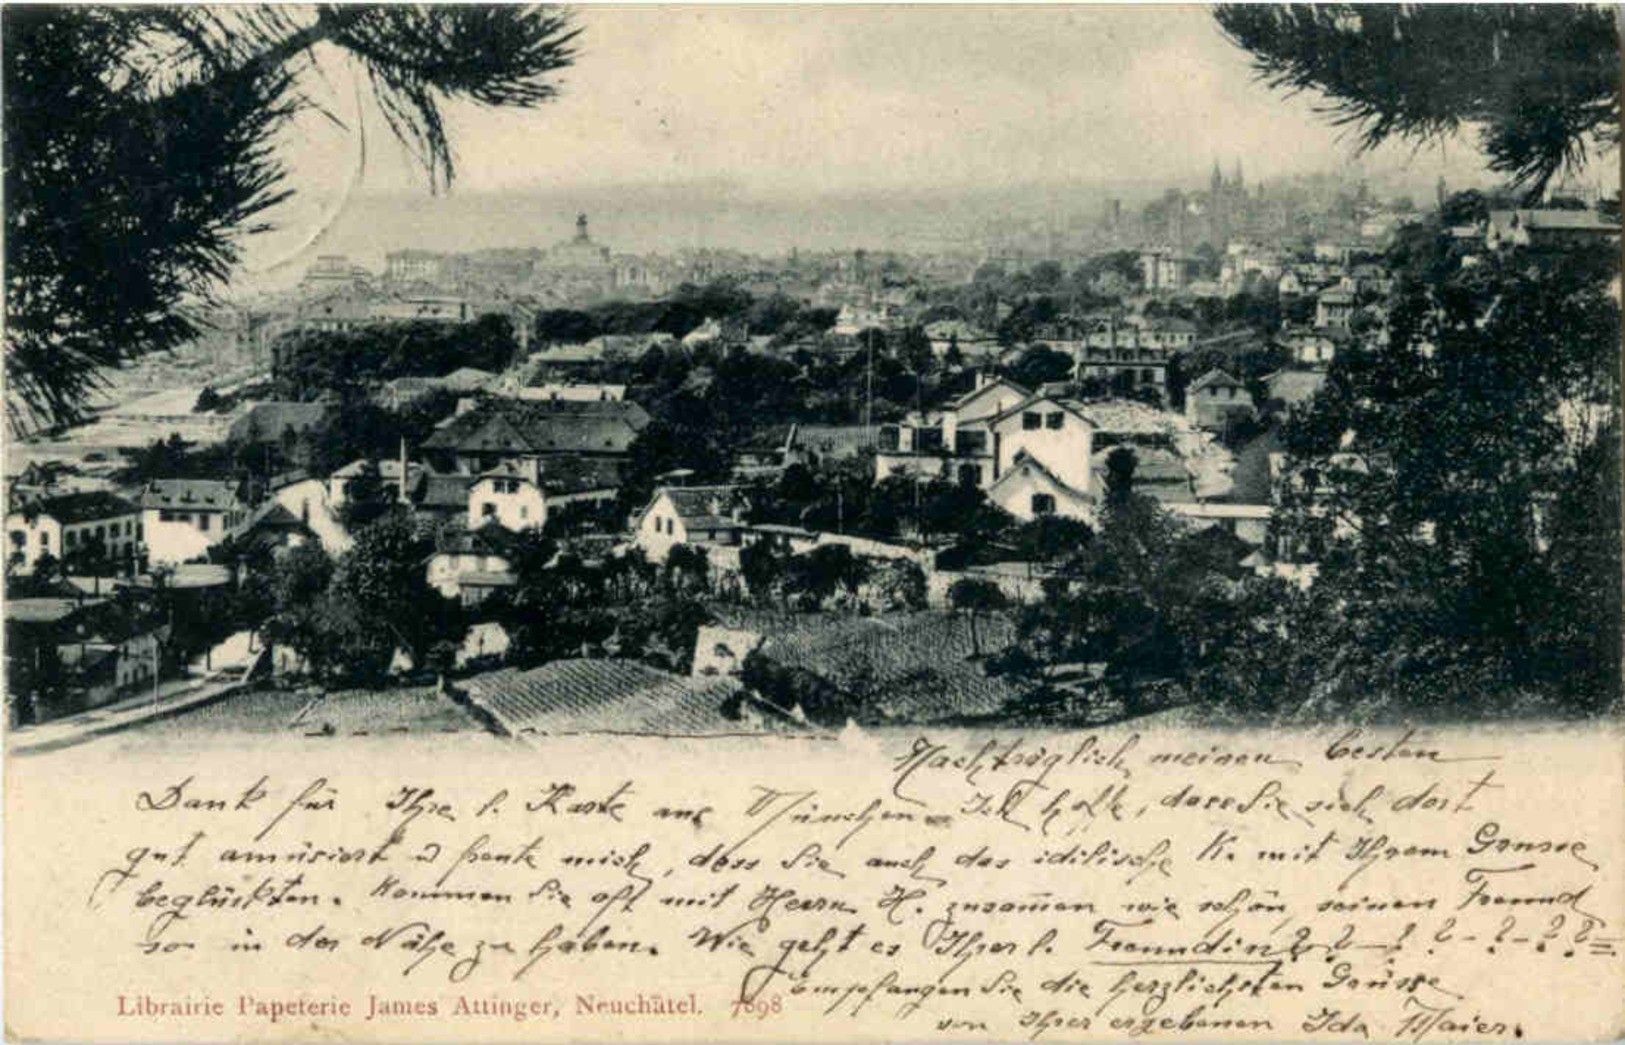 Nachträglich meinen besten
Dank für Ihre l. Karte aus München. Ich hoffe, dass Sie sich dort
gut amüsiert u freute mich, dass Sie auch das idilische K. mit Ihrem Grusse
beglückten. Kommen Sie oft mit Herrn H. zusam̅en wie schön, seinen Freund
so in der Nähe zu haben. Wie geht es Ihrer l. Freundin? ? – ? ? – ? – ? ? =
Empfangen Sie die herzlichsten Grüsse
von Ihrer ergebenen Ida Maier.
Librairie Papeterie James Attinger, Neuchâtel. 7898